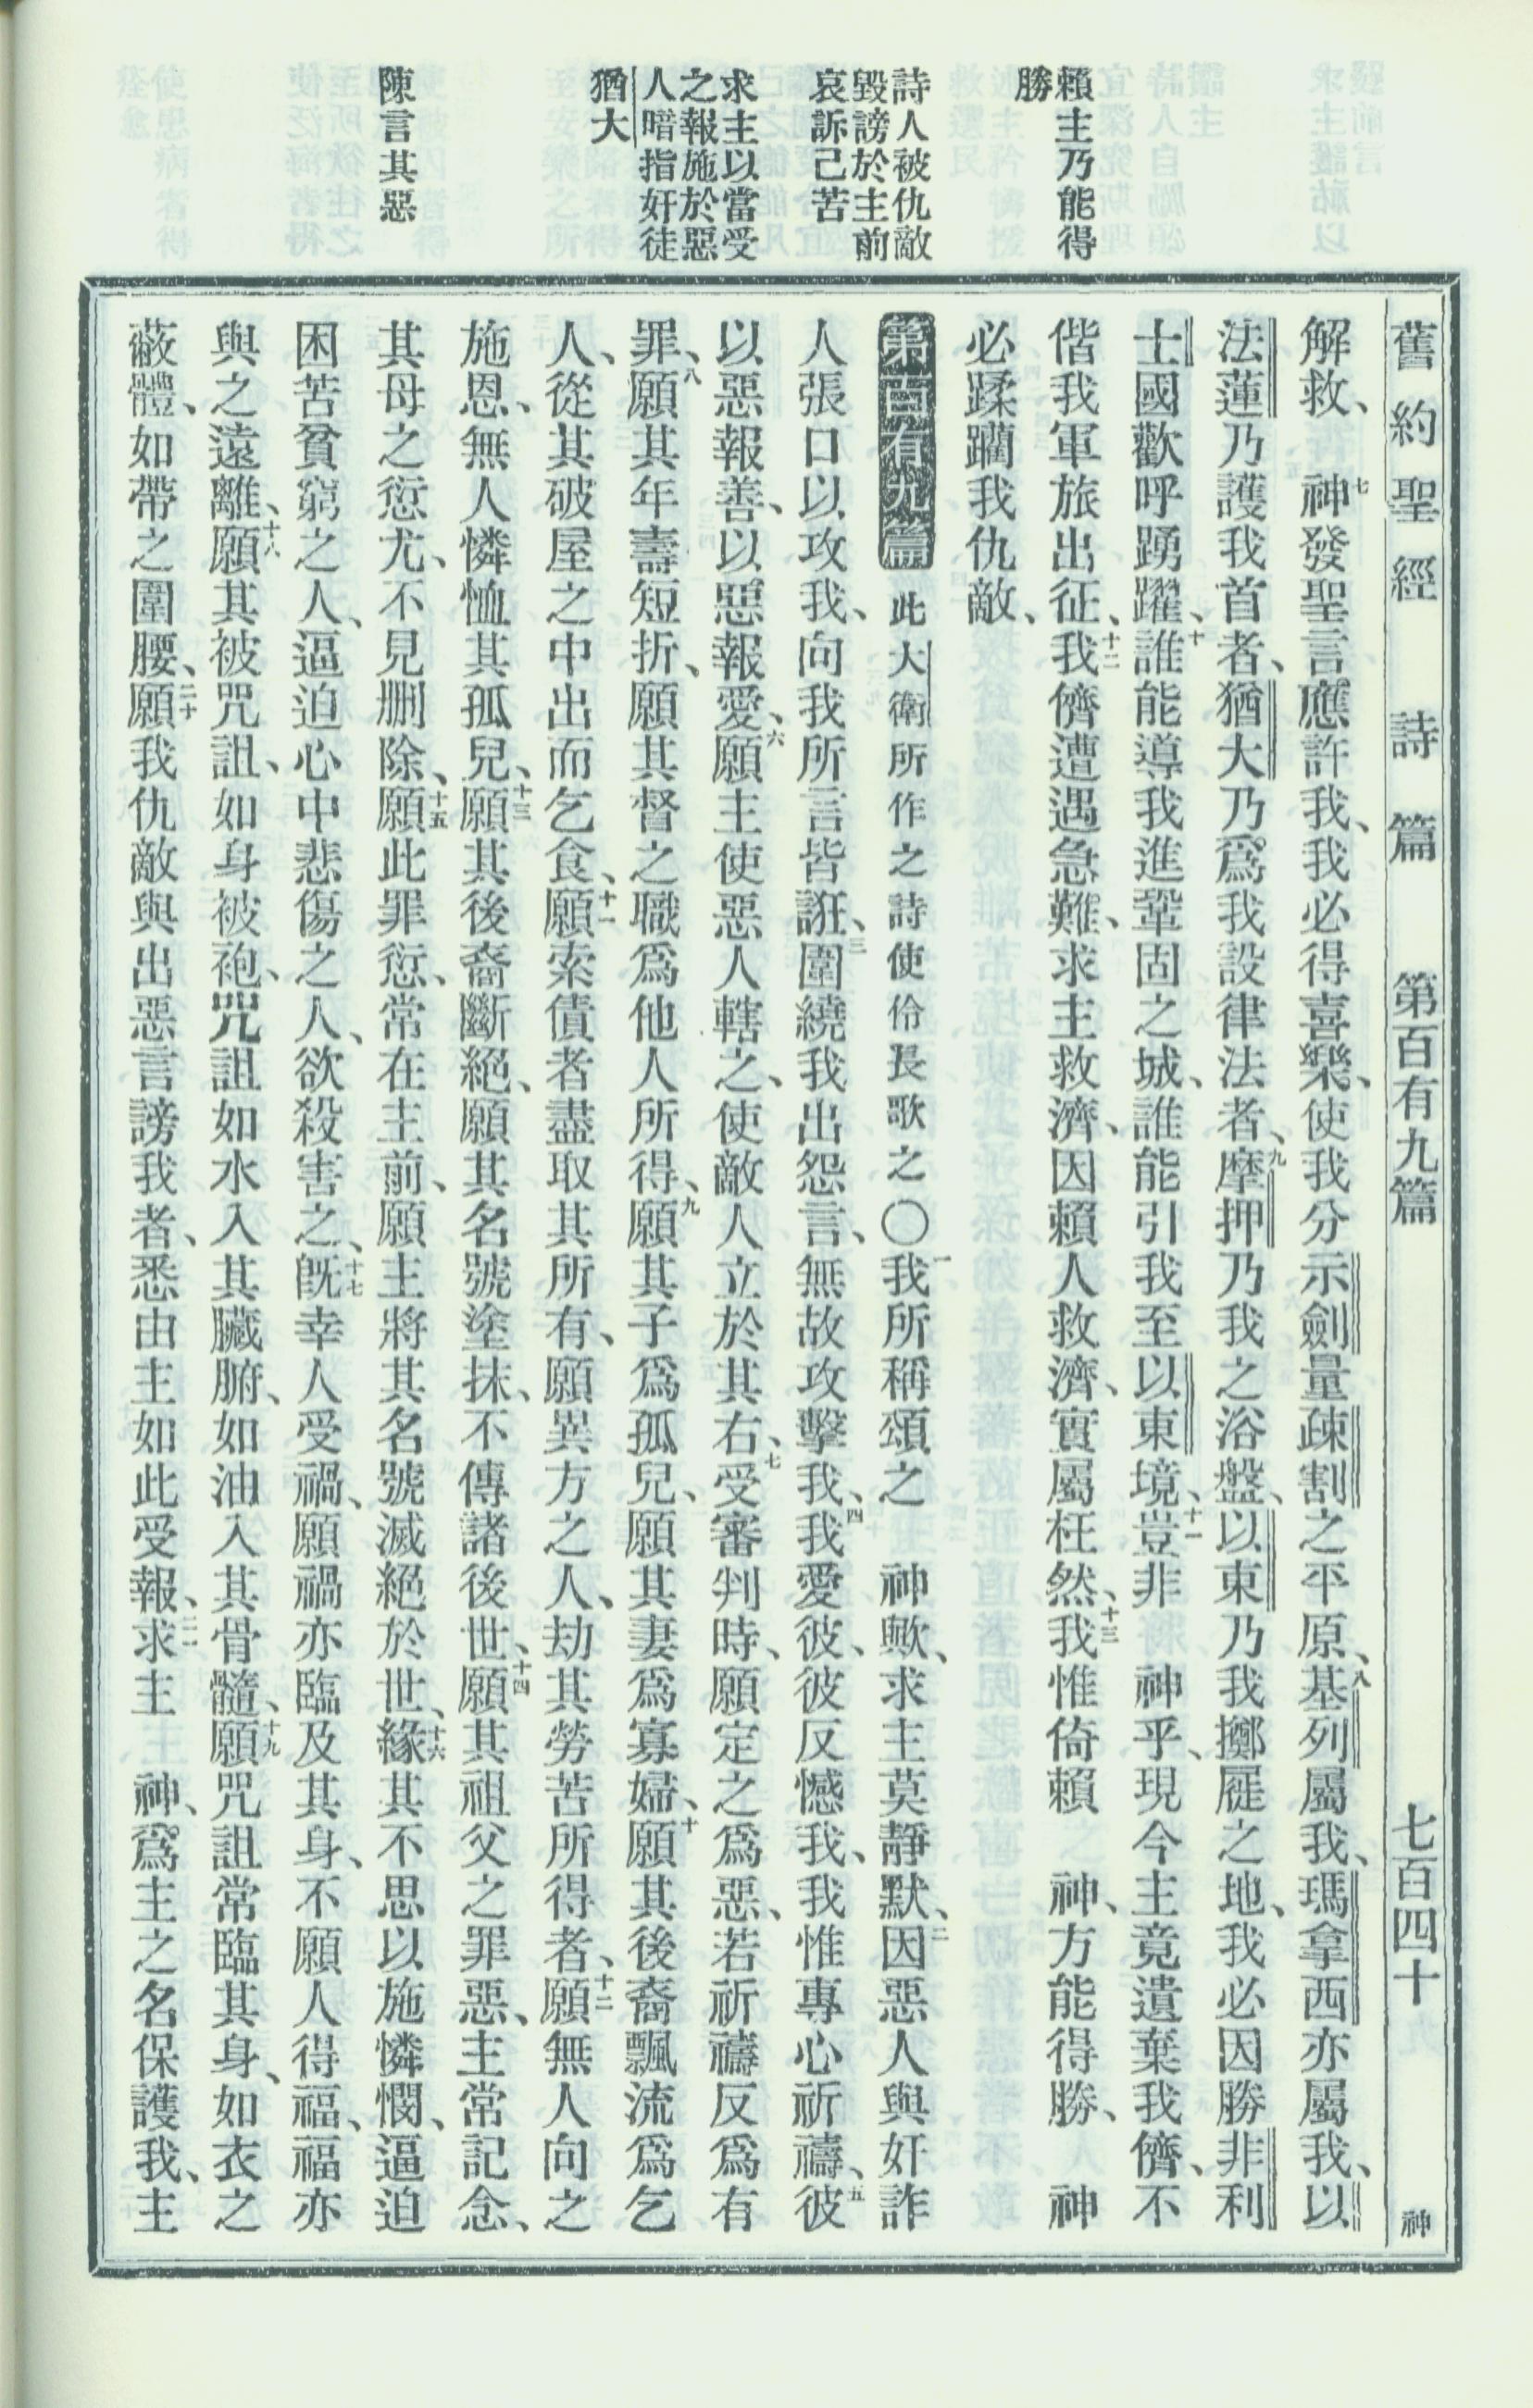 舊約聖經 詩篇 第百有九篇 七百四十 神
賴主乃能得
勝
詩人被仇敵
毀謗於主前
哀訴己苦
求主以當受
之報施於惡
人暗指奸徒
猶大
陳言其惡
解救、七神發聖言應許我、我必得喜樂、使我分示劍量疎割之平原、八基列屬我、瑪拿西亦屬我、以
法蓮乃護我首者、猶大乃爲我設律法者、九摩押乃我之浴盤、以東乃我擲屣之地、我必因勝非利
士國歡呼踴躍、十誰能導我進鞏固之城、誰能引我至以東境、十一豈非 神乎、現今主竟遺棄我儕、不
偕我軍旅出征、十二我儕遭遇急難、求主救濟、因賴人救濟、實屬枉然、十三我惟倚賴 神、方能得勝、 神
必蹂躪我仇敵、
第百有九篇 此大衛所作之詩使伶長歌之〇一我所稱頌之 神歟、求主莫靜默、二因惡人與奸詐
人張口以攻我、向我所言皆誑、三圍繞我出怨言、無故攻擊我、四我愛彼、彼反憾我、我惟專心祈禱、五彼
以惡報善、以惡報愛、六願主使惡人轄之、使敵人立於其右、七受審判時、願定之爲惡、若祈禱反爲有
罪、八願其年壽短折、願其督之職爲他人所得、九願其子爲孤兒、願其妻爲寡婦、十願其後裔飄流爲乞
人、從其破屋之中出而乞食、十一願索債者盡取其所有、願異方之人、劫其勞苦所得者、十二願無人向之
施恩、無人憐恤其孤兒、十三願其後裔斷絕、願其名號塗抹、不傳諸後世、十四願其祖父之罪惡、主常記念、
其母之愆尤、不見刪除、十五願此罪愆、常在主前、願主將其名號滅絕於世、十六緣其不思以施憐憫、逼迫
困苦貧窮之人、逼迫心中悲傷之人、欲殺害之、十七旣幸人受禍、願禍亦臨及其身、不願人得福、福亦
與之遠離、十八願其被咒詛、如身被袍、咒詛如水入其臟腑、如油入其骨髓、十九願咒詛常臨其身、如衣之
蔽體、如帶之圍腰、二十願我仇敵與出惡言謗我者、悉由主如此受報、二一求主 神、爲主之名保護我、主